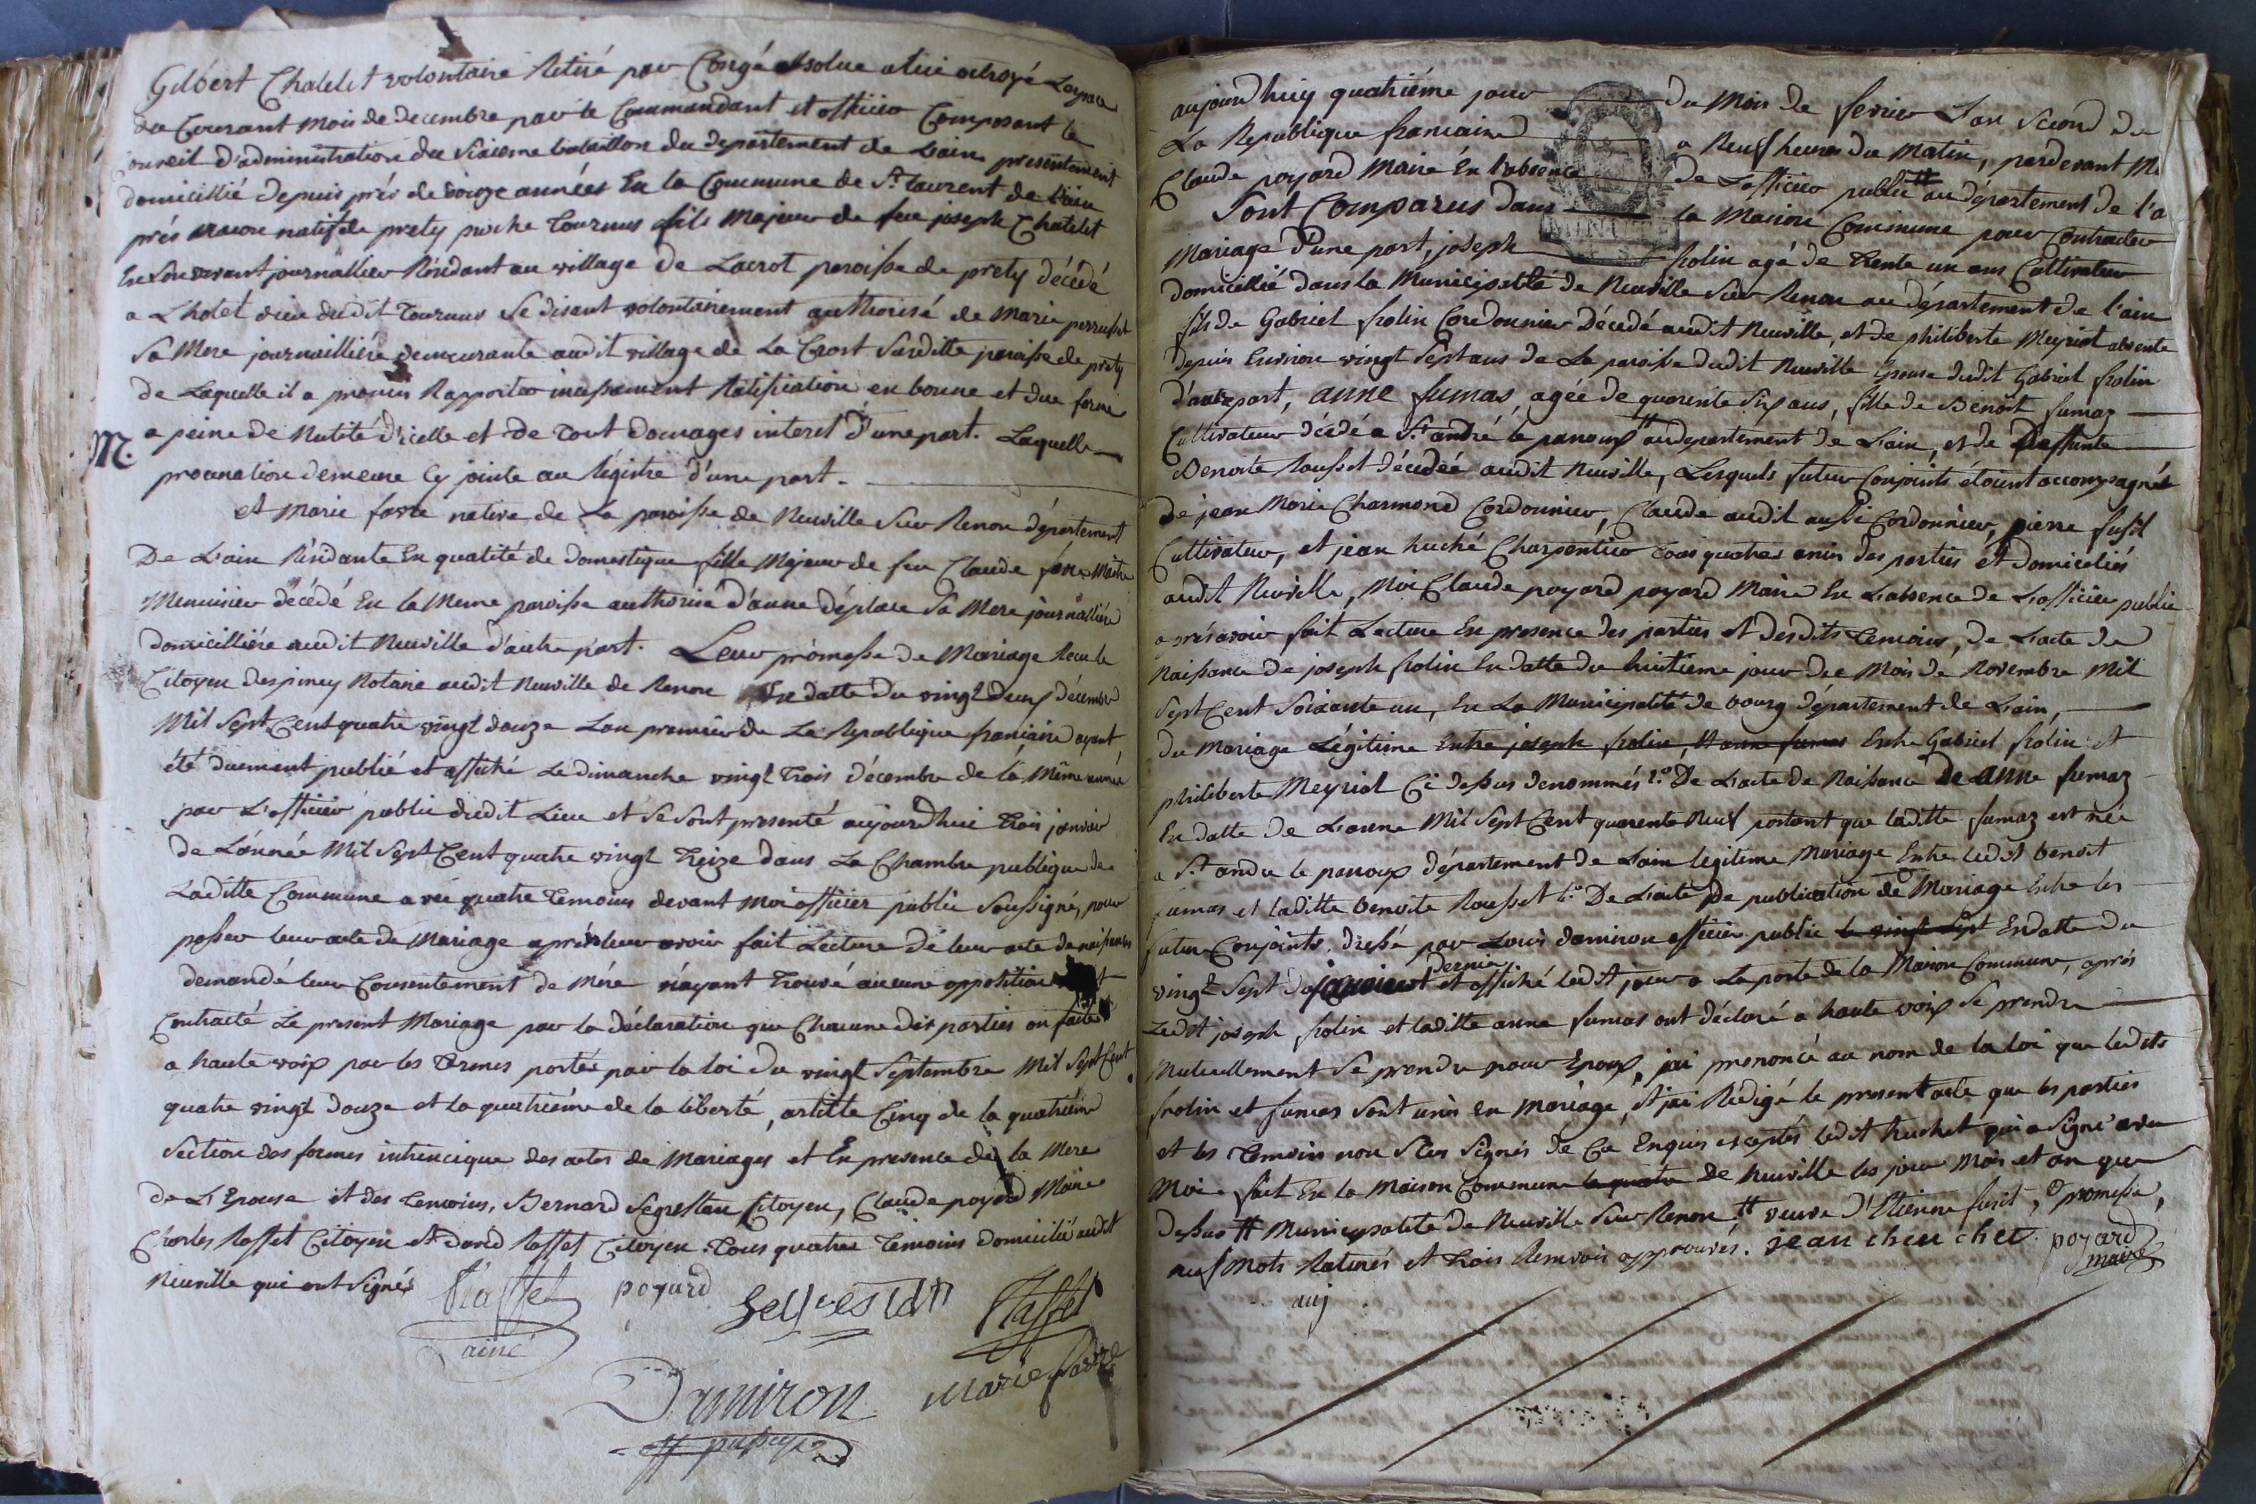 Gilbert Chatelet volontaire Retiré par Congé absolue a lui octroyé
du Courant mois de decembre par le Commandant et officier Composant le
Conseil d'administration du Sixieme bataillon du departement de Lain, presentement
domicillié depuis prés de douze années En la Commune de St. laurent de Lain
prés macon natif de prety proche Tournus fils Majeur de feu joseph Chatelet
En son vivant journallier Résidant au village de Lacrot paroisse de prety décédé
a Lhotel dieu dudit Tournus se disant volontairement authorisé de Marie perrusset
Sa Mere journailliére demeurante audit village de La Crost Surditte paroisse de prety
de Laquelle il a promis Rapporter incessament Ratification en bonne et due forme
a peine de Nulité d'icelle et de Tout domages interet d'une part. Laquelle
M.
procuration demeure Cy jointe au Régistre d'une part.
et Marie favre native de La paroisse de Neuville Sur Renon département
De L'ain Résidante En qualité de domestique fille Majeur de feu Claude favre Maitre
Menuisier décédé En la Meme paroisse authorisé d'anne déplace Sa Mere journallière
domicilliére audit Neuville d'autre part. Leur prómesse de Mariage Recu le
Citoyen despiney Notaire audit Neuville de Renon En datte du vingt deux décembre
Mil Sept Cent quatre vingt douze Lan premier de La Republique francaise ayant
été duement publié et affiché Le dimanche vingt Trois décembre de la Même année
par L'officier public dudit Lieu et se sont presenté aujourdhui Trois janvier
de Lánnée Mil Sept Cent quatre vingt Treize dans La Chambre publique de
Laditte Commune avec quatre Temoins devant Moi officier public Soussigné, pour
passer leur acte de Mariage aprés leur avoir fait Lecture de leur acte de naissances
demandé leur Consentement de Mére n'ayant Trouvé aucune opposition
Contracté Le present Mariage par la déclaration que Chacune des parties on faite
a haute voix par les Termes portés par la loi du vingt Septembre Mil Sept Cent
quatre vingt douze et la quatrieme de la liberté, artitte Cinq de la quatriéme
Section des formes intrincique des actes de Mariages et En presence de la Mere
de L'Epouse et des Temoins, Bernard Citoyen, Claude poyard Maire
Charles Raffet Citoyen et david Raffet Citoyen Tous quatres Temoins domicilié audit
Neuville qui ont Signés
Raffet poyard Raffet
ainé
Damiron Marie favre
aujourdhuy quatriéme jour du Mois de fevrier L'an Second de
La Republique francaise a Neuf heures du Matin, pardevant M
Claude poyard Maire En l'absence de L'officier public # au département de l'a
Sont Comparus dans la Maison Commune pour Contracter
MINUTE
Mariage d'une part, joseph frolin agé de Trente un ans Cultivateur
domicillié dans la Municipalité de Neuville Sur Renon au département de l'ain
fils de Gabriel frolin Cordonnier Décédé audit Neuville, et de philiberte Meyriat absente
depuis Environ vingt Sept ans de La paroisse dudit Neuville Epouse dudit Gabriel frolin
d'autre part, anne fumas, agée de quarente six ans, fille de Benoit fumaz
Cultivateur décédé a St. andré le panoux # au departement de Lain, et de Deffunte
Benoite Rousset décédée audit Neuville, Lesquels futur Conjoints étoient accompagnés
de jean Marie Charmond Cordonnier, Claude audit aussi Cordonnier, pierre fusil
Cultivateur, et jean huché Charpentier Tous quatres amis des parties et domiciliés
audit Neuville, Moi Claude poyard poyard Maire En L'absence de L'officier public
aprés avoir fait Lecture En presence des parties et desdits Temoins, de L'acte de
Naissance de joseph frolin En datte du huitieme jour du Mois de Novembre Mil
Sept Cent Soixante un, En La Municipalité de bourg département de Lain,
du Mariage Légitime Entre joseph frolin, et anne fumas Entre Gabriel frolin et
philiberte Meyriat Ci dessus denommés 2.º De L'acte de Naissance de Anne fumaz
En datte de L'anne Mil Sept Cent quarente Neuf portant que laditte fumaz est née
a St. andré le panoux département de Lain legitime Mariage Entre ledit benoit
fumas et laditte benoite Rousset De L'acte De publication de Mariage Entre les
futur Conjoints, dressé par Louis damiron officier public le vingt Sept En datte du
vingt Sept de janvier dernier et affiché ledit jour a La porte de la Maison Commune, aprés
Ledit joseph frolin et laditte anne fumas ont déclaré a haute voix Se prendre
Mutuellement Se prendre pour Epoux, jai prononcé au nom de la loi que ledits
frolin et fumas sont unis En Mariage, et jai Rédigé le present acte que les parties
et les Temoins non Sceu Signés de Ce Enquis exceptés ledit huchet qui a Signé avec
Moi. fait En la Maison Commune de Neuville les jour Mois et an que
dessus # Municipalité de Neuville Sur Renon, # veuve d'Etienne furet, promesse,
neuf Mots Raturés et Trois Renvois approuvés. jean cheu chet. poyard
maire
auj